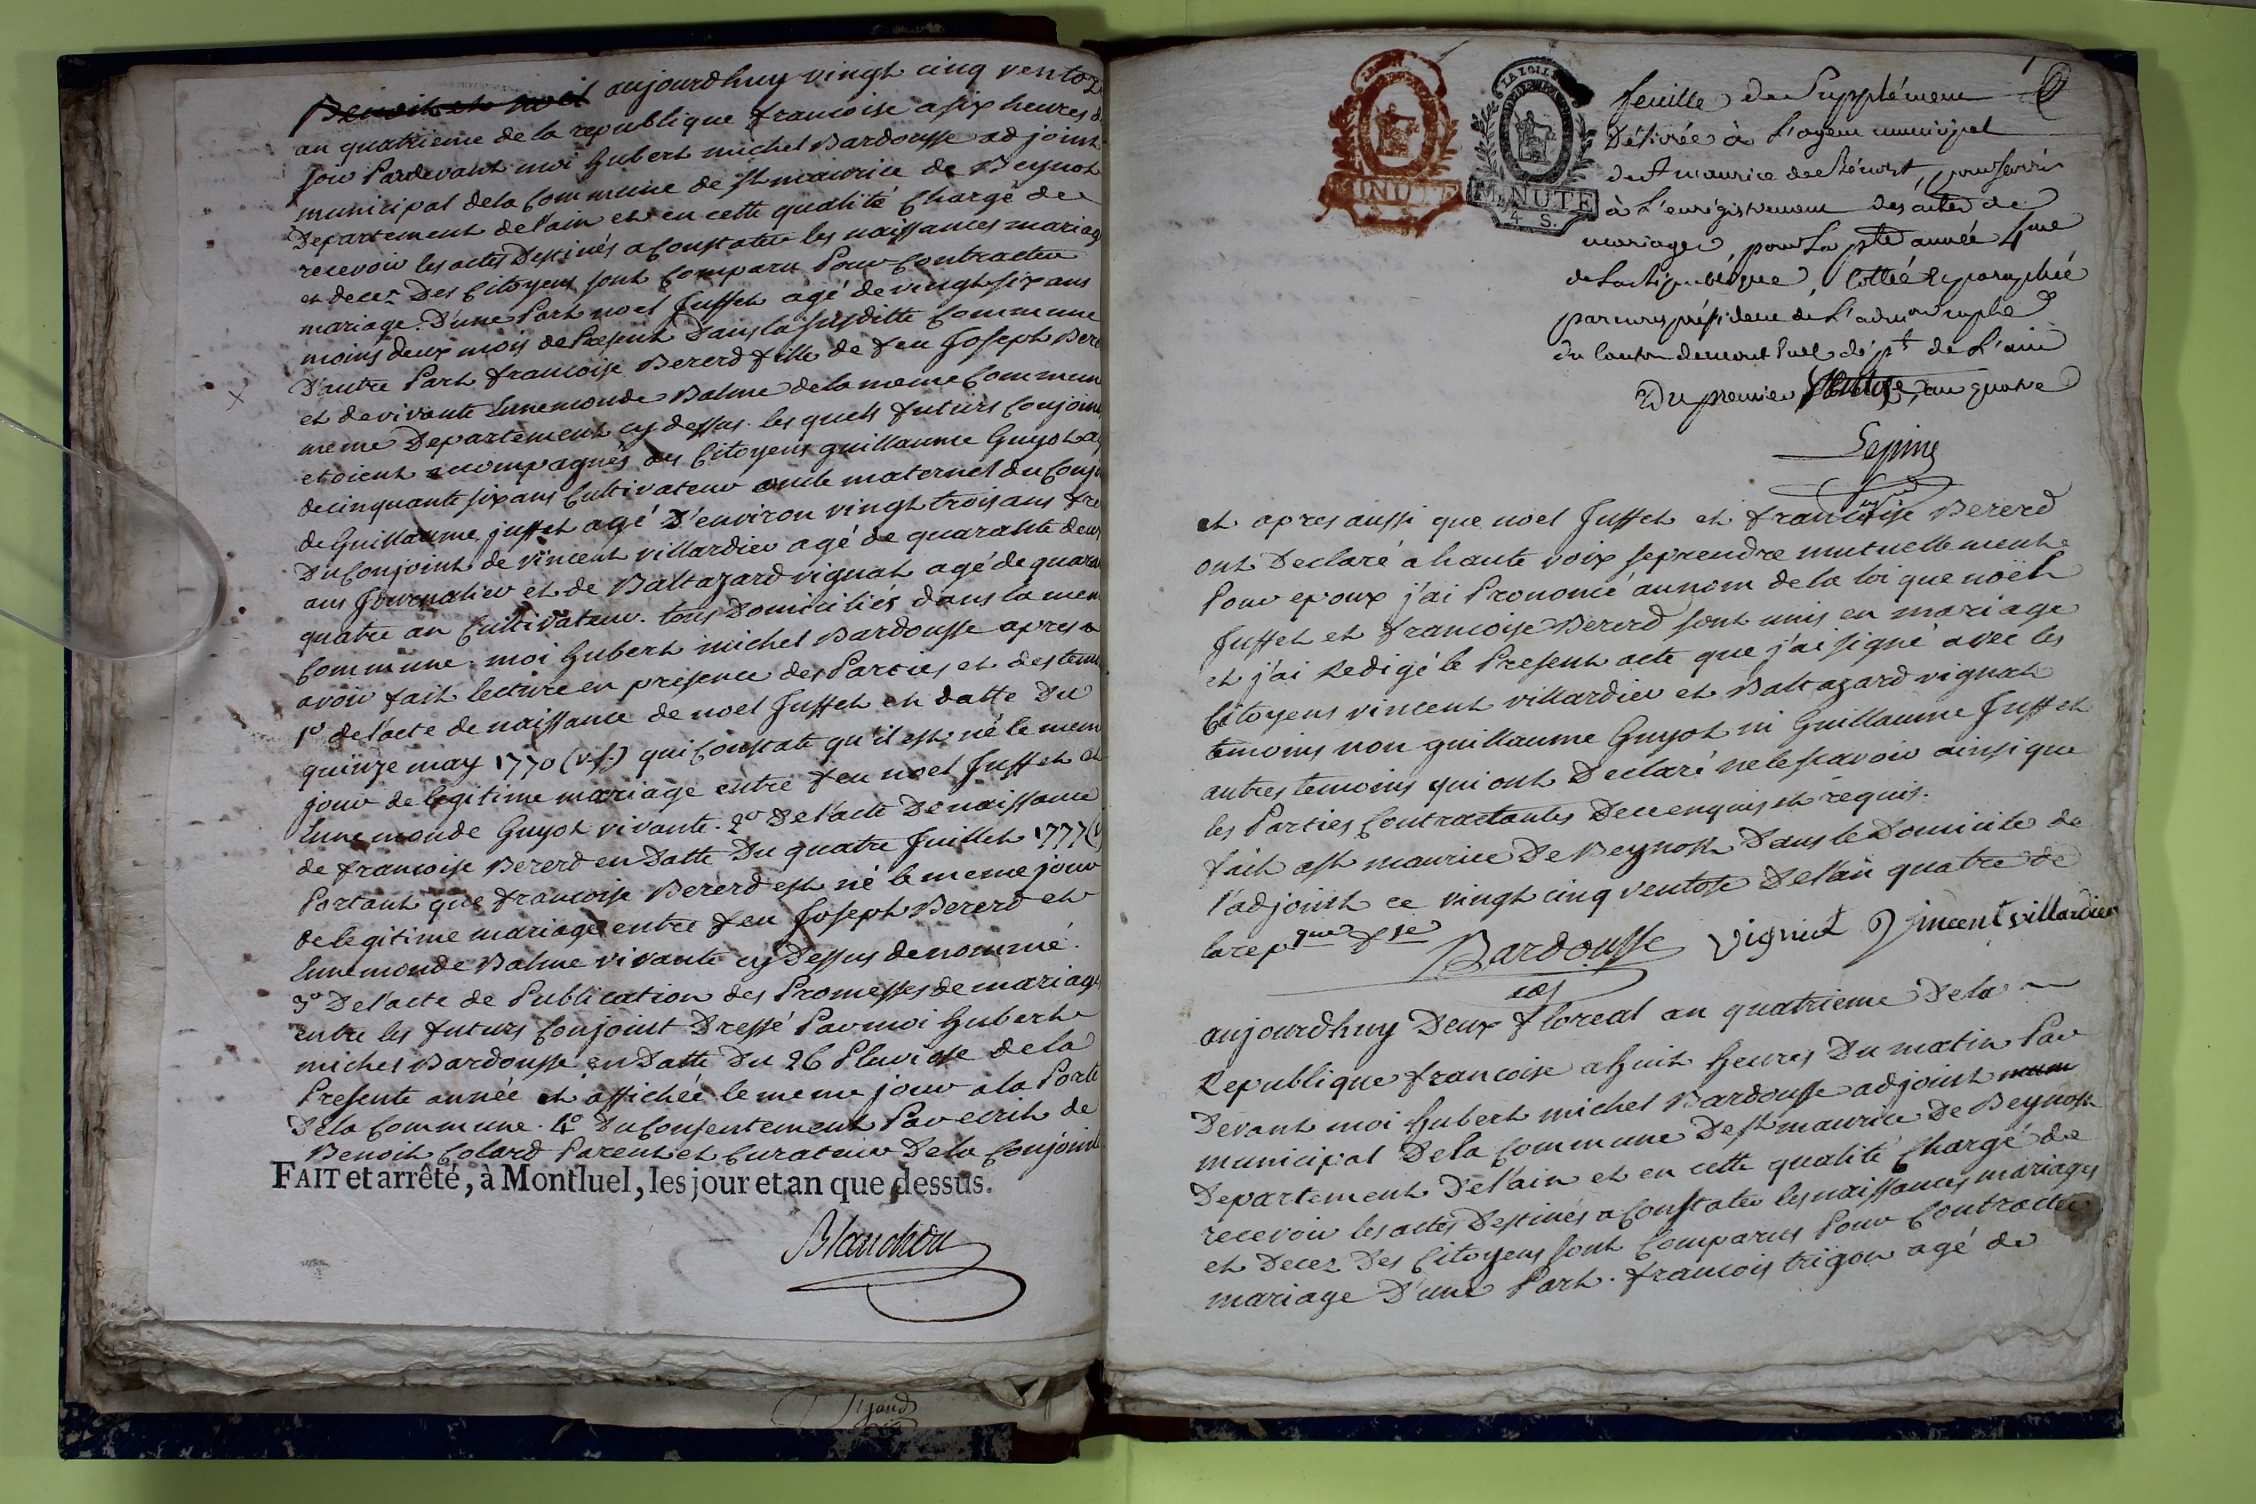 aujourdhuy vingt cinq ventoz
an quatrieme de la republique francoise a six heures d
soir Pardevant moi hubert michel Bardousse adjoint
municipal dela Commune de st maurice de Beynot
Departement de l'ain et en cette qualité Chargé de
recevoir les actes Destinés a Constater les naissances mariag
et decez Des Citoyens sont Comparu Pour Contracter
mariage. D'une Part noel Juffet agé de vingt six ans
moins deux mois de Present Dans la susditte Commune
D'autre Part francoise Bererd fille de feu Joseph Bere
et de vivante Ennemonde Balme de la meme Commun
meme Departement cy dessus. les quels futurs Conjoin
etoient accompagnés des Citoyens guillaume Guyot a
de cinquante six ans Cultivateur oncle maternel du Conjo
de Guillaume juffet agé D'environ vingt trois ans fre
Du Conjoint de vincent villardier agé de quarante deux
ans Journalier et de Baltazard vignat agé de quara
quatre an Cultivateur. tous Domiciliés dans la mem
Commune. moi hubert michel Bardousse apres
avoir fait lecture en presence des Parties et des tem
1º de l'acte de naissance de noel Juffet en datte Du
quinze may 1770 (v.s.) qui Constate qu'il est né le mem
jour de legitime mariage entre feu noel Juffet et
Ennemonde Guyot vivante. 2º De l'acte De naissance
de francoise Bererd en Datte Du quatre Juillet 1777 (v
Portant que francoise Bererd est né le meme jour
de legitime mariage entre feu Joseph Bererd et
Ennemonde Balme vivante cy Dessus denommé.
3º De l'acte de Publication des Promesses de mariage
entre les futurs Conjoint Dressé Par moi hubert
michel Bardousse en Datte Du 26 Pluviose de la
Presente année et affichée le meme jour a la Porte
De la Commune. 4º Du Consentement Par ecrit de
Benoit Colard Parent et Curateur De la Conjointe
FAIT et arrêté, à Montluel, les jour et an que dessus.
Blanchon
MINUTE
LA LOI
MINUTE
4 S.
feuille de Supplément
Délivrée à L'agent municipal
de St maurice de Bénost, pour servir
à L'enrégistrement des actes de
mariage, pour La pste année 4me
de La république, Cottée & paraphée
par nous président de L'admon muplé
du Canton de montluel dépt de L'ain
Du premier ventose, an quatre
Lepine
et apres aussi que noel Juffet et francoise Bererd
ont Declaré a haute voix se prendre mutuellement
Pour epoux j'ai Prononcé au nom de la loi que noël
Juffet et francoise Bererd sont unis en mariage
et j'ai Redigé le Present acte que j'ai signé avec les
Citoyens vincent villardier et Baltazard vignat
temoins non guillaume Guyot ni Guillaume Juffet
autres temoins qui ont Declaré ne le scavoir ainsi que
les Parties Contractantes De ce enquis et requis.
fait a st maurice De Beynost Dans le Domicile de
l'adjoint ce vingt cinq ventose De l'an quatre de
la repque fse
Bardousse vignat Vincent villardier
adj
aujourdhuy Deux floreal an quatrieme De la
Republique francoise a huit heures Du matin Par
Devant moi hubert michel Bardousse adjoint mum
municipal De la Commune De st maurice De Beynost
Departement De l'ain et en cette qualité Chargé de
recevoir les actes Destinés a Constater les naissances mariages
et Decez Des Citoyens sont Comparus Pour Contracter
mariage D'une Part. francois trigon agé de